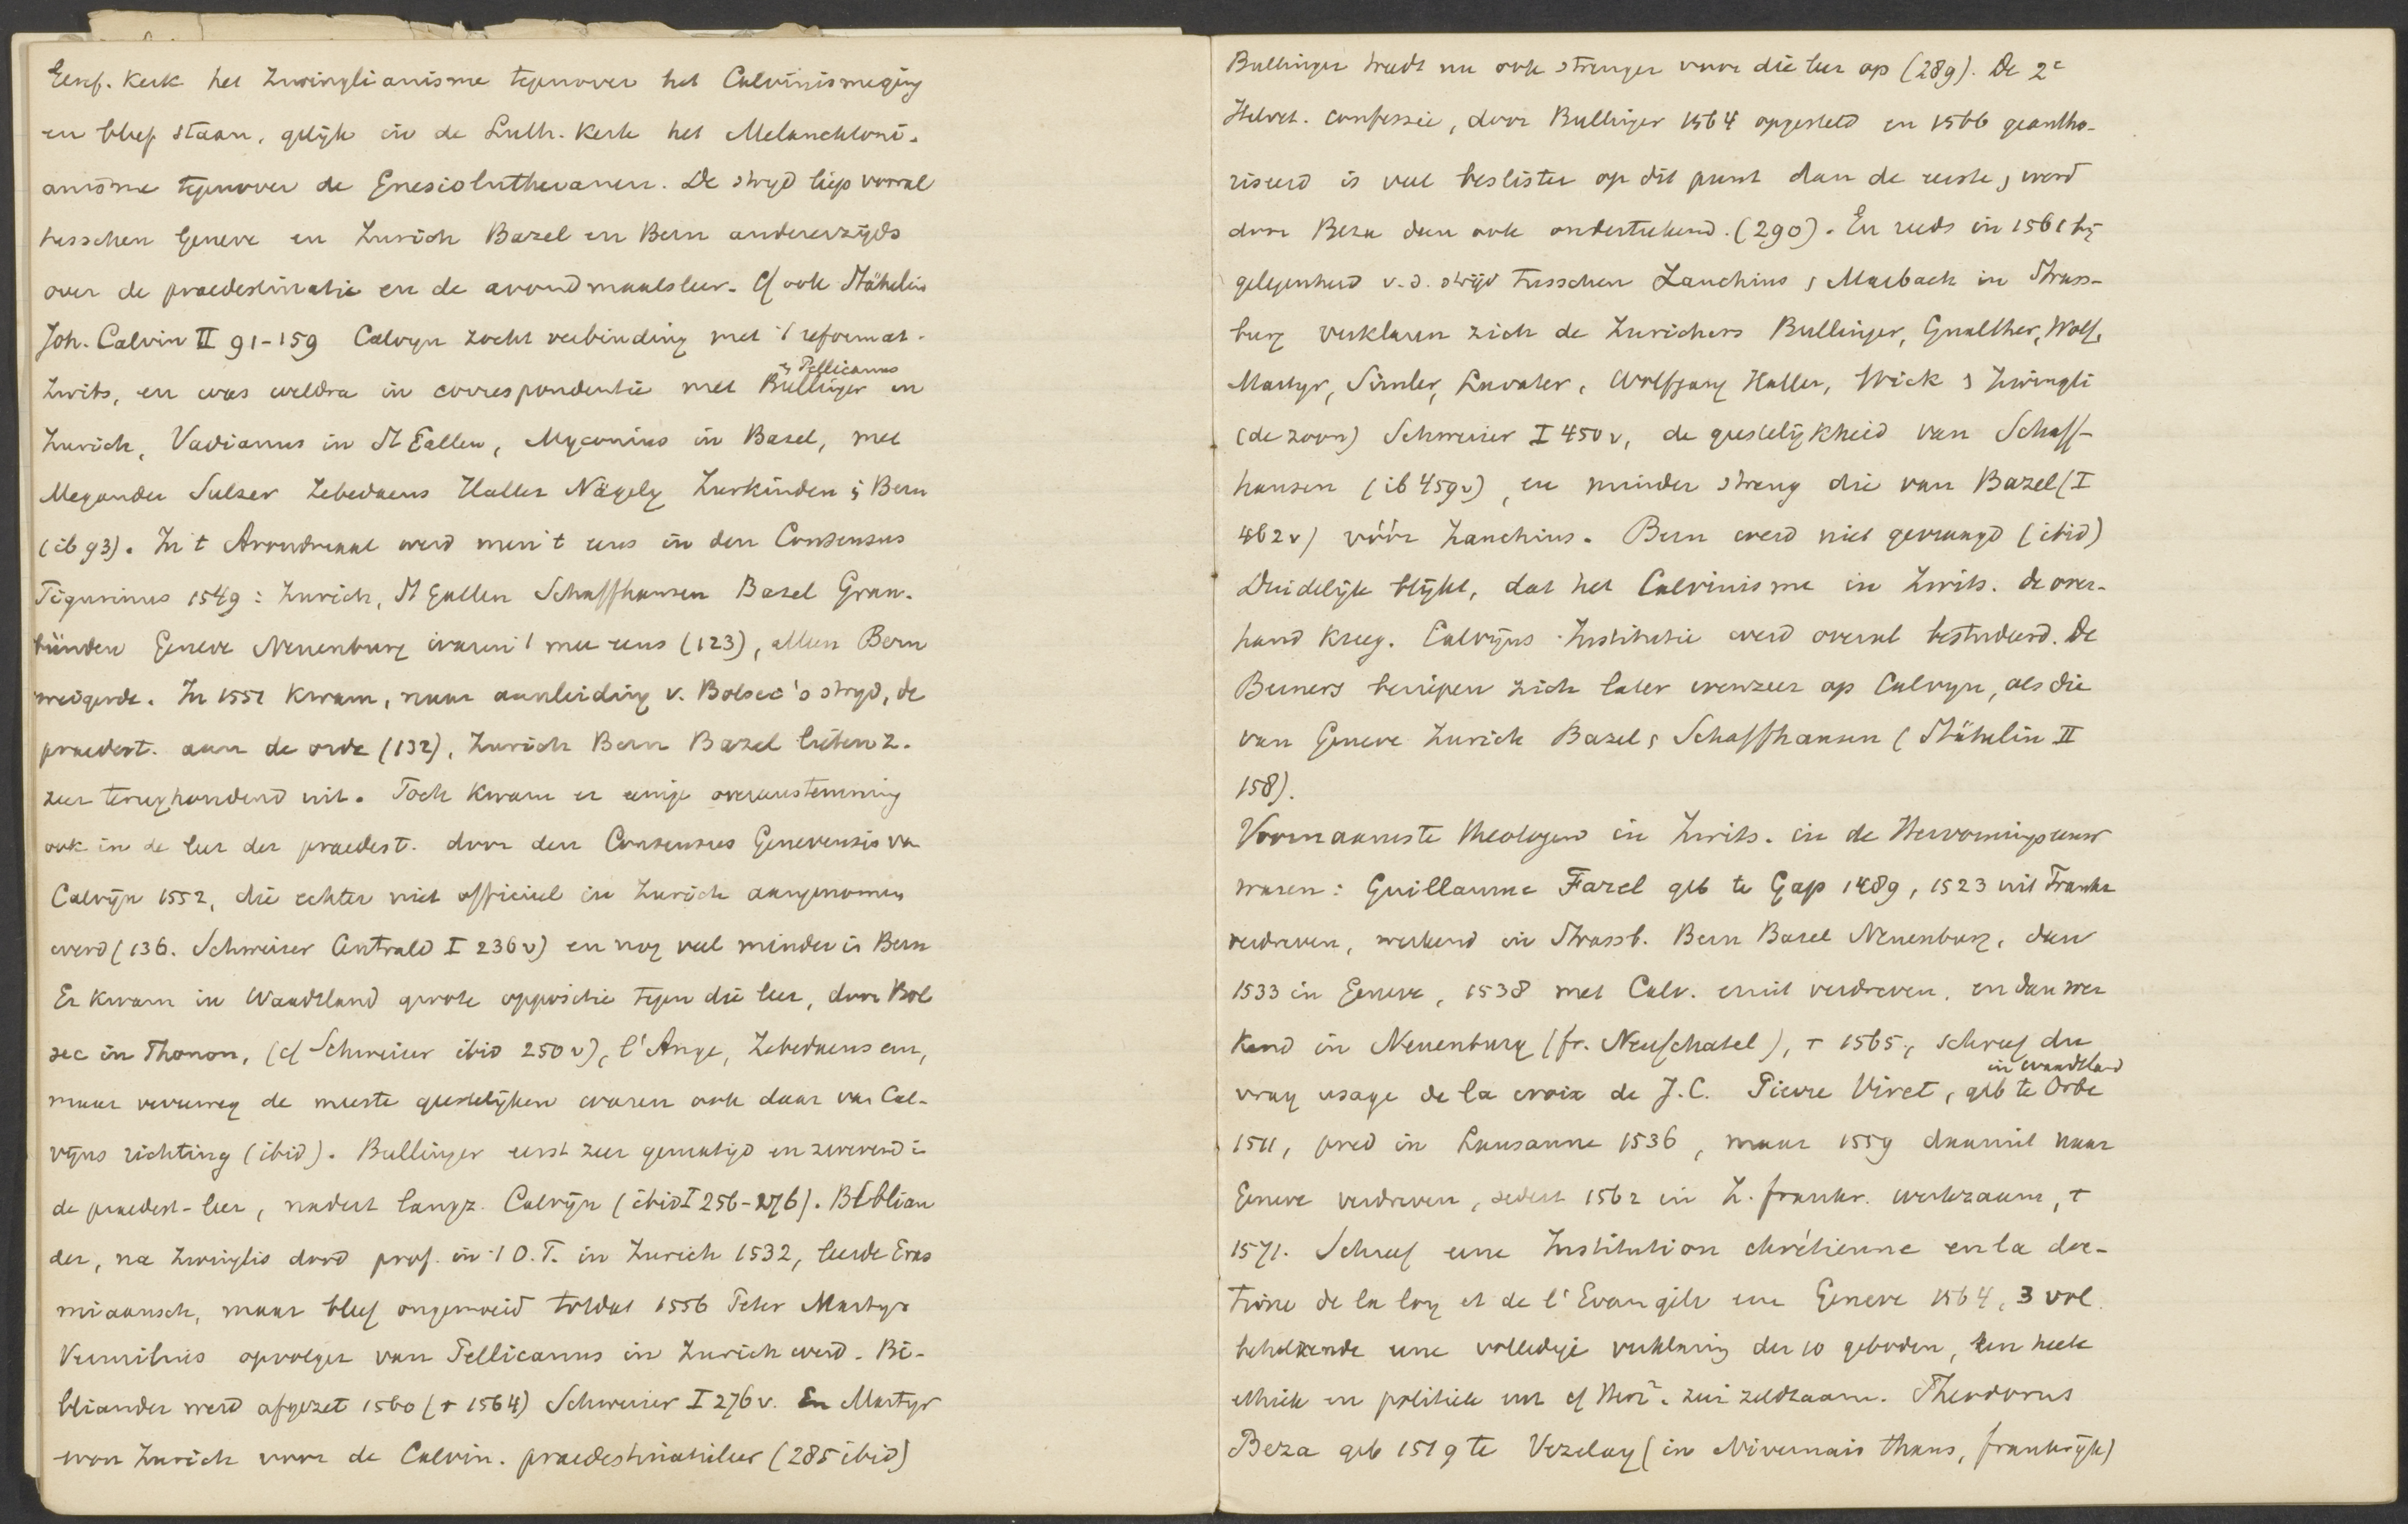 Geref. Kerk het Zwinglianisme tegenover het Calvinisme ging
en bleef staan, gelijk in de Luth. Kerk het Melanchtoni-
anisme tegenover de Gnesiolutheranen. De strijd liep vooral
tusschen Geneve en Zurich Bazel en Bern andererzijds
over de praedestinatie en de avondmaalsleer. Cf ook Stähelin
Joh. Calvin II 91-159 Calvijn zocht verbinding met 't reformat.
Zwits, en was weldra in correspondentie met Bullinger & Pellicanus in
Zurich, Vadianus in St Gallen, Myconius in Basel, met
Megander Sulzer Zebedaeus Haller Nägely Zurkinden i Bern
(ib 93). In t Avondmaal werd men 't eens in den Consensus
Tigurinus 1549: Zurich, St Gallen Schaffhausen Basel Grau-
bünden Geneve Neuenburg waren 't mee eens (123), alleen Bern
weigerde. In 1551 kwam, naar aanleiding v. Bolsec's strijd, de
praedest. aan de orde (132), Zurich Bern Bazel lieten z.
zeer terughoudend uit. Toch kwam er eenige overeenstemming
ook in de leer der praedest. door den Consensus Genevensis va
Calvijn 1552, die echter niet officieel in Zurich aangenomen
werd (136. Schweizer Centrald I 236v) en nog veel minder in Bern
Er kwam in Waadtland groote oppositie tegen die leer, door Bol
sec in Thonon, (cf Schweizer ibid 250v), l'Ange, Zebedaeus en,
maar verreweg de meeste geestelijken waren ook daar van Cal-
vijns richting (ibid). Bullinger eerst zeer gematigd en zwevend i
de praedest-leer, nadert langz. Calvijn (ibid I 256-276). Biblian
der, na Zwinglis dood prof. in 't O.T. in Zurich 1532, leerde Eras
miaansch, maar bleef ongemoeid totdat 1556 Peter Martyr
Vermilius opvolger van Pellicanus in Zurich werd. Bi-
bliander werd afgezet 1560 († 1564) Schweizer I 276v. En Martyr
won Zurich voor de Calvin. praedestinatieleer (285 ibid)
Bullinger treedt nu ook strenger voor die leer op (289). De 2e
Helvet. confessie, door Bullinger 1564 opgesteld en 1566 geautho-
riseerd is veel beslister op dit punt dan de eerste, werd
door Beza dan ook onderteekend. (290). En reeds in 1561 bij
gelegenheid v.d. strijd tusschen Zanchius & Marbach in Strass-
burg verklaren zich de Zurichers Bullinger, Gualther, Wolf,
Martyr, Simler, Lavater, Wolfgang Haller, Wick & Zwingli
(de zoon) Schweizer I 450v, de geestelijkheid van Schaff-
hausen (ib 459v), en minder streng die van Bazel (I
462v) vóór Zanchius. Bern werd niet gevraagd (ibid)
Duidelijk blijkt, dat het Calvinisme in Zwits. de over-
hand kreeg. Calvijns Institutie werd overal bestudeerd. De
Berners beriepen zich later evenzeer op Calvijn, als die
van Geneve Zurich Basel & Schaffhausen (Stähelin II
158).
Voornaamste theologen in Zwits. in de Hervormingseeuw
waren: Guillaume Farel geb te Gap 1489, 1523 uit Frankr
verdreven, werkend in Strassb. Bern Basel Neuenburg, dan
1533 in Geneve, 1538 met Calv. eruit verdreven, en dan wer
kend in Neuenburg (fr. Neufchatel), † 1565, schreef du
vray usage de la croix de J.C. Pierre Viret, geb te Orbe in Waadtland
1511, pred in Lausanne 1536, maar 1559 daaruit naar
Geneve verdreven, sedert 1562 in Z. frankr. werkzaam, †
1571. Schreef eene Institution chrétienne en la doc-
trine de la loy et de l'Evangile ene Geneve 1564, 3 vol.
behelzende eene volledige verklaring der 10 geboden, een heele
ethiek en politiek enz cf Herz². zeer zeldzaam. Theodorus
Beza geb 1519 te Vezelay (in Nivernais thans, frankrijk)